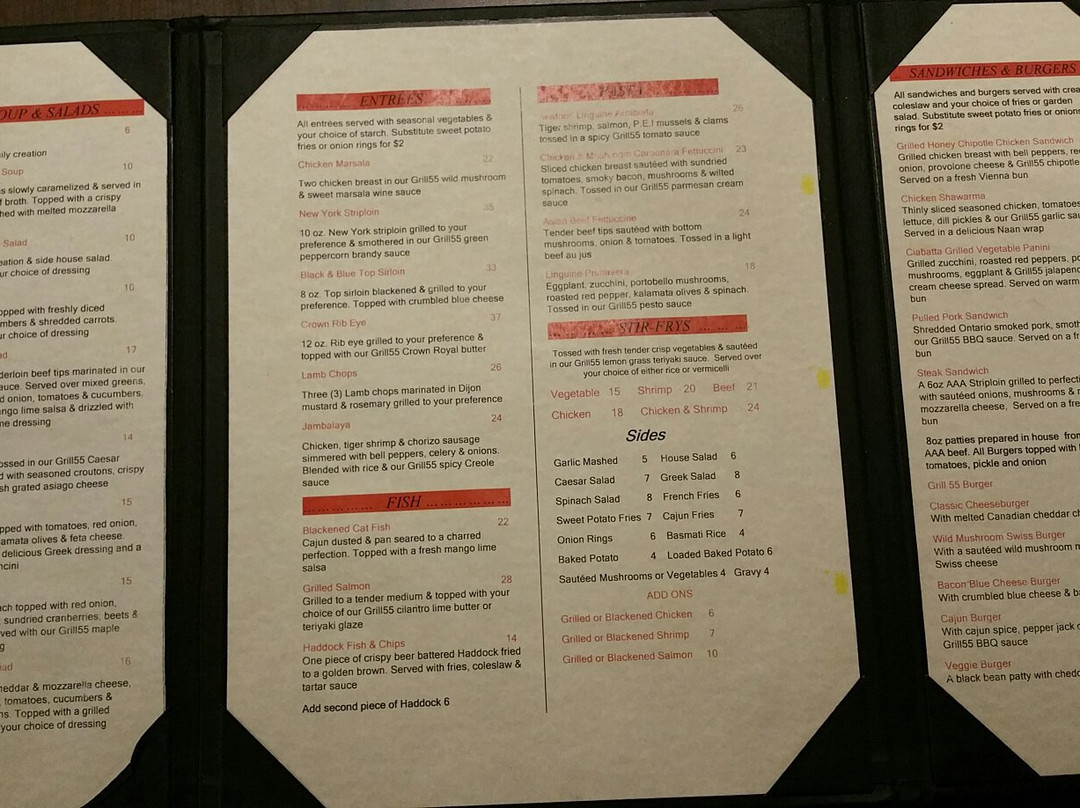 OUP & SALADS ........
6
ily creation
Soup 10
s slowly caramelized & served in
broth. Topped with a crispy
hed with melted mozzarella
Salad 10
eation & side house salad.
ur choice of dressing
10
opped with freshly diced
mbers & shredded carrots.
ur choice of dressing
ad 17
derloin beef tips marinated in our
auce. Served over mixed greens,
d onion, tomatoes & cucumbers,
ngo lime salsa & drizzled with
me dressing
14
ossed in our Grill55 Caesar
d with seasoned croutons, crispy
sh grated asiago cheese
15
pped with tomatoes, red onion,
amata olives & feta cheese.
delicious Greek dressing and a
ncini
15
ach topped with red onion,
sundried cranberries, beets &
ved with our Grill55 maple
g
ad 16
heddar & mozzarella cheese,
, tomatoes, cucumbers &
ns. Topped with a grilled
your choice of dressing
ENTRÉES
All entrées served with seasonal vegetables &
your choice of starch. Substitute sweet potato
fries or onion rings for $2
Chicken Marsala 22
Two chicken breast in our Grill55 wild mushroom
& sweet marsala wine sauce
New York Striploin 35
10 oz. New York striploin grilled to your
preference & smothered in our Grill55 green
peppercorn brandy sauce
Black & Blue Top Sirloin 33
8 oz. Top sirloin blackened & grilled to your
preference. Topped with crumbled blue cheese
Crown Rib Eye 37
12 oz. Rib eye grilled to your preference &
topped with our Grill55 Crown Royal butter
Lamb Chops 26
Three (3) Lamb chops marinated in Dijon
mustard & rosemary grilled to your preference
Jambalaya 24
Chicken, tiger shrimp & chorizo sausage
simmered with bell peppers, celery & onions.
Blended with rice & our Grill55 spicy Creole
sauce
... ... ... ... FISH ... ... ... ...
Blackened Cat Fish 22
Cajun dusted & pan seared to a charred
perfection. Topped with a fresh mango lime
salsa
Grilled Salmon 28
Grilled to a tender medium & topped with your
choice of our Grill55 cilantro lime butter or
teriyaki glaze
Haddock Fish & Chips 14
One piece of crispy beer battered Haddock fried
to a golden brown. Served with fries, coleslaw &
tartar sauce
Add second piece of Haddock 6
PASTA
Seafood Linguine 26
Tiger shrimp, salmon, P.E.I mussels & clams
tossed in a spicy Grill55 tomato sauce
Chicken & Mushroom Carbonara Fettuccini 23
Sliced chicken breast sautéed with sundried
tomatoes, smoky bacon, mushrooms & wilted
spinach. Tossed in our Grill55 parmesan cream
sauce
Beef Fettuccine 24
Tender beef tips sautéed with bottom
mushrooms, onion & tomatoes. Tossed in a light
beef au jus
Linguine Primavera 18
Eggplant, zucchini, portobello mushrooms,
roasted red pepper, kalamata olives & spinach.
Tossed in our Grill55 pesto sauce
... ... STIR-FRYS ... ... ...
Tossed with fresh tender crisp vegetables & sautéed
in our Grill55 lemon grass teriyaki sauce. Served over
your choice of either rice or vermicelli
Vegetable 15 Shrimp 20 Beef 21
Chicken 18 Chicken & Shrimp 24
Sides
Garlic Mashed 5 House Salad 6
Caesar Salad 7 Greek Salad 8
Spinach Salad 8 French Fries 6
Sweet Potato Fries 7 Cajun Fries 7
Onion Rings 6 Basmati Rice 4
Baked Potato 4 Loaded Baked Potato 6
Sautéed Mushrooms or Vegetables 4 Gravy 4
ADD ONS
Grilled or Blackened Chicken 6
Grilled or Blackened Shrimp 7
Grilled or Blackened Salmon 10
SANDWICHES & BURGERS
All sandwiches and burgers served with crea
coleslaw and your choice of fries or garden
salad. Substitute sweet potato fries or onion
rings for $2
Grilled Honey Chipotle Chicken Sandwich
Grilled chicken breast with bell peppers, re
onion, provolone cheese & Grill55 chipotle
Served on a fresh Vienna bun
Chicken Shawarma
Thinly sliced seasoned chicken, tomatoes
lettuce, dill pickles & our Grill55 garlic sa
Served in a delicious Naan wrap
Ciabatta Grilled Vegetable Panini
Grilled zucchini, roasted red peppers, po
mushrooms, eggplant & Grill55 jalapeno
cream cheese spread. Served on warm
bun
Pulled Pork Sandwich
Shredded Ontario smoked pork, smoth
our Grill55 BBQ sauce. Served on a fr
bun
Steak Sandwich
A 6oz AAA Striploin grilled to perfecti
with sautéed onions, mushrooms & r
mozzarella cheese, Served on a fre
bun
8oz patties prepared in house from
AAA beef. All Burgers topped with l
tomatoes, pickle and onion
Grill 55 Burger
Classic Cheeseburger
With melted Canadian cheddar ch
Wild Mushroom Swiss Burger
With a sautéed wild mushroom m
Swiss cheese
Bacon Blue Cheese Burger
With crumbled blue cheese & ba
Cajun Burger
With cajun spice, pepper jack c
Grill55 BBQ sauce
Veggie Burger
A black bean patty with chedd